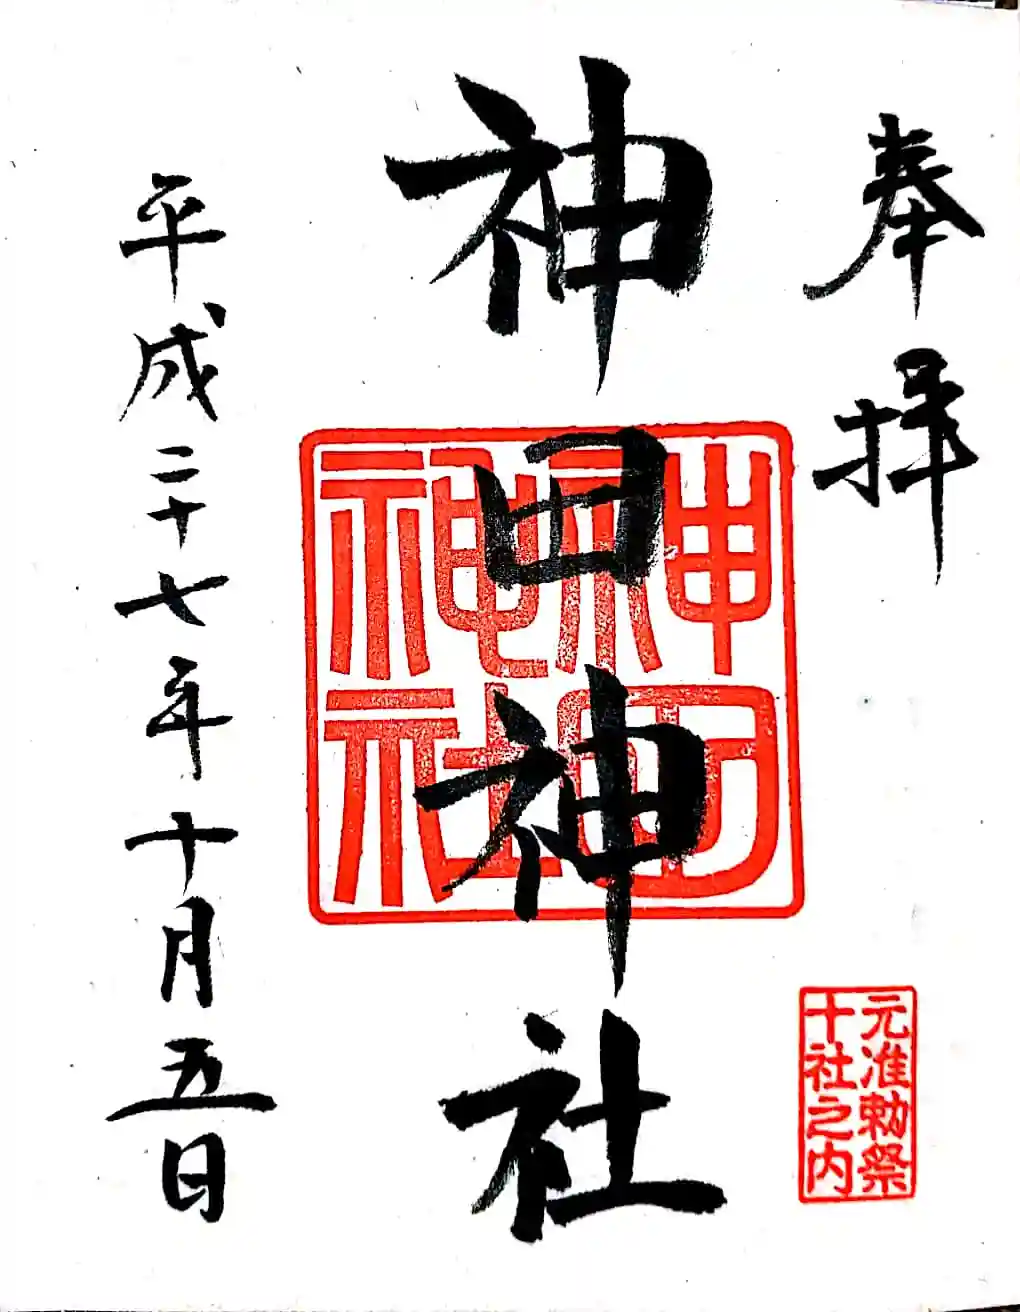 奉拝
元准勅祭
十社之内
神田神社
神田神社
平成二十七年十月五日